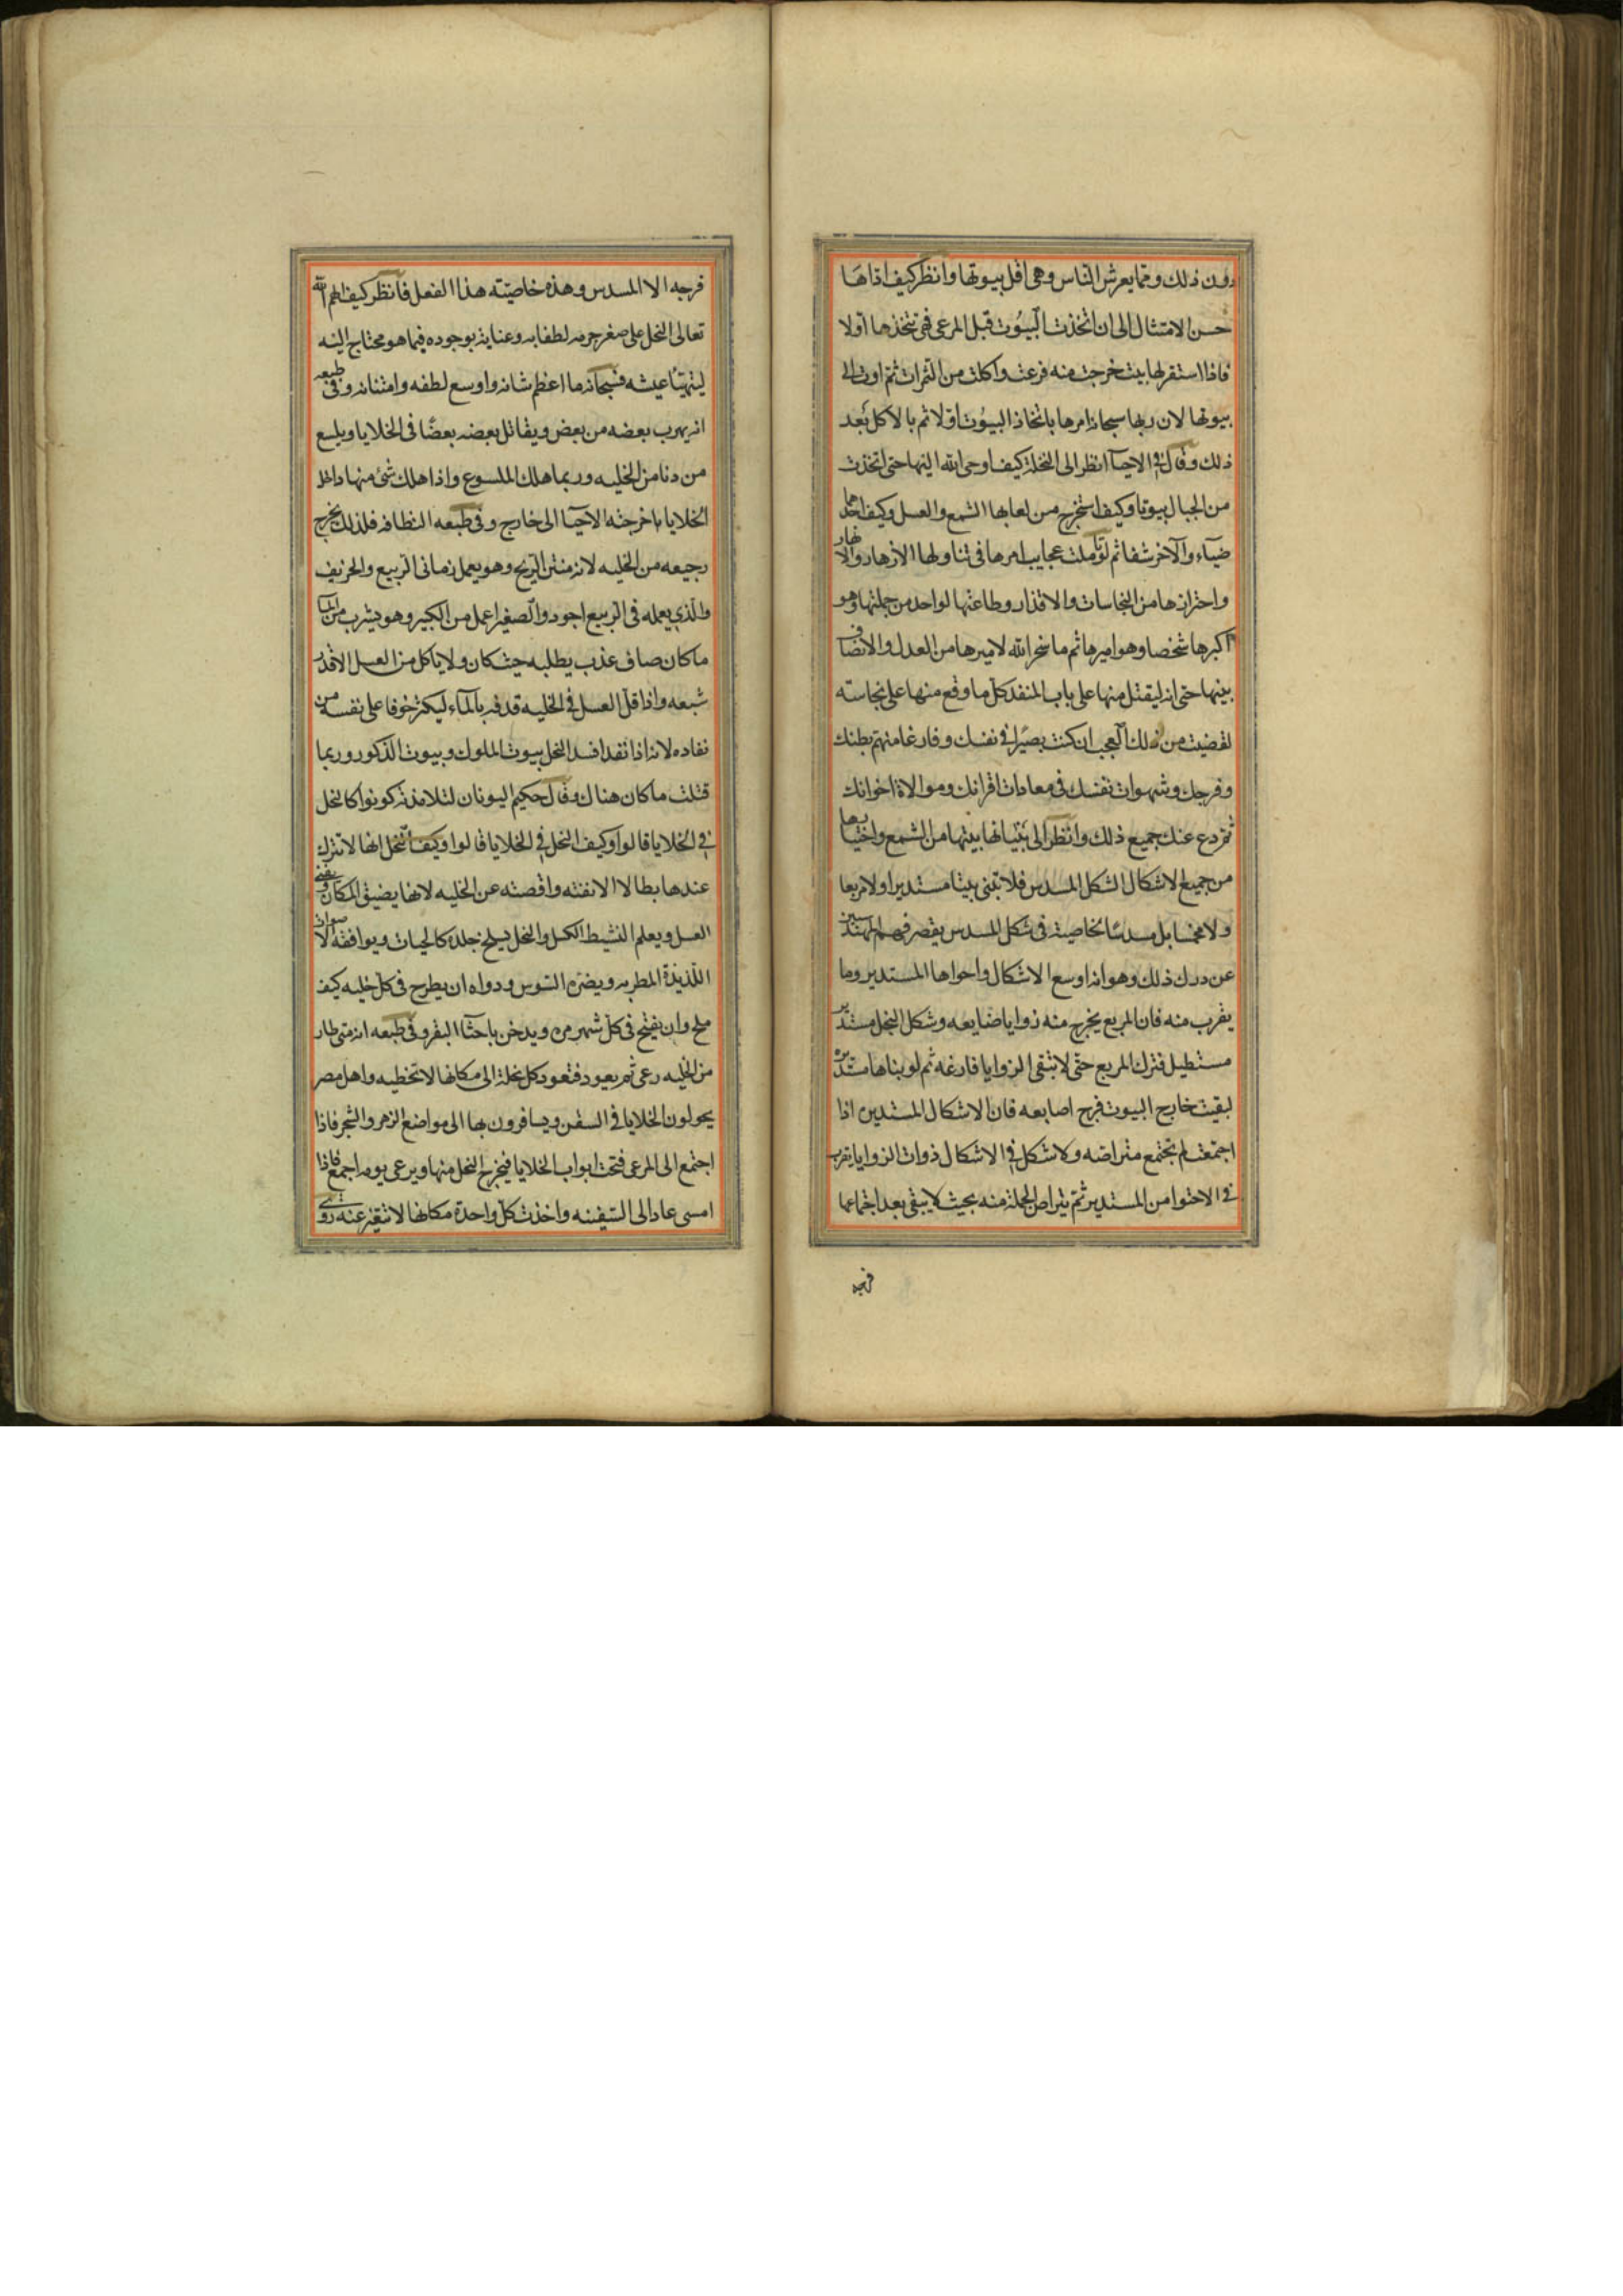 دون ذلك ومما يعرش الناس وهي اقل بيوتها وانظر كيف اداها
حسن الامتثال الى ان اتخذت البيوت قبل المرعى فهى تتخذها اولا
فاذا استقر لها بيت خرجت منه فرعت واكلت من الثمرات ثم اوت الى
بيوتها لان ربها سبحانه امرها باتخاذ البيوت اولا ثم بالاكل بعد
ذلك وقال في الاحيا انظر الى النحلة كيف اوحى الله اليها حتى اتخذت
من الجبال بيوتا وكيف استخرج من لعابها الشمع والعسل وكيف احدهما
ضياء والآخر شفا ثم لو تاملت عجايب امرها فى تناولها الازهار والانهار
واحترازها من النجاسات والاقذار وطاعتها لواحد من جملتها وهو
اكبرها شخصا وهو اميرها ثم ما سخر الله لاميرها من العدل والانصاف
بينها حتى انه ليقتل منها على باب المنفد كل ما وقع منها على نجاسته
لقضيت من ذلك العجب ان كنت بصيرا في نفسك وفارغا من هم بطنك
وفرجك وشهوات نفسك فى معادات اقرانك وموالاة اخوانك
ثم دع عنك جميع ذلك وانظر الى بنيانها بيتها من الشمع واختيارها
من جميع الاشكال الشكل المسدس فلا تبنى بيتا مستديرا ولا مربعا
ولا مخمسا بل مسدسا لخاصية فى شكل المسدس يقصر فهم المهندسين
عن درك ذلك وهو انه اوسع الاشكال واحواها المستدير وما
يقرب منه فان المربع يخرج منه زوايا ضايعه وشكل النحل مستدير
مستطيل فترك المربع حتى لا تبقى الزوايا فارغه ثم لو بناها مستديره
لبقيت خارج البيوت فرج ضايعه فان الاشكال المستديره اذا
اجتمعت لم تجتمع متراصه ولا شكل في الاشكال ذوات الزوايا يقرب
في الاحتوا من المستدير ثم يتراص الجملة منه بحيث لا يبقى بعد اجتماعها
فرجه
فرجه الا المسدس وهذه خاصيته هذا الفعل فانظر كيف الهم الله
تعالى النحل على صغر جرمه لطفا به وعناية بوجوده فيما هو محتاج اليه
ليتهنا عيشه فسبحانه ما اعظم شانه واوسع لطفه وامتنانه وفى طبعه
انه يهرب بعضه من بعض ويقاتل بعضه بعضا فى الخلايا ويلسع
من دنا من الخليه وربما هلك الملسوع واذا هلك شئ منها داخل
الخلايا اخرجته الاحيا الى خارج وفى طبعه النظافه فلذلك يخرج
رجيعه من الخليه لانه منتن الريح وهو يعمل زمانى الربيع والخريف
والذي يعمله فى الربيع اجود والصغير اعمل من الكبير وهو يشرب من الما
ما كان صاف عذب يطلبه حيث كان ولا ياكل من العسل الا قدر
شبعه واذا قل العسل في الخليه قدفه بالماء ليكثر خوفا على نفسه من
نفاده لانه اذا نفد افسد النحل بيوت الملوك وبيوت الذكور وربما
قتلت ما كان هناك وقال حكيم اليونان لتلامذته كونوا كالنحل
في الخلايا قالوا وكيف النحل في الخلايا قالوا وكيف النحل انها لا تترك
عندها بطالا الا نفته واقصته عن الخليه لانها يضيق المكان ويفنى
العسل ويعلم النشيط الكسل والنحل يسلخ جلده كالحيات ويوافقه الاصوات
اللذيذة المطربه ويضره السوس ودواه ان يطرح فى كل خليه كيف
ملح وان يفتح فى كل شهر مره ويدخن باخثا البقر وفى طبعه انه متى طار
من الخليه رعى ثم يعود فتعود كل نحلة الى مكانها لا تخطيه واهل مصر
يحولون الخلايا فى السفن ويسافرون بها الى مواضع الزهر والشجر فاذا
اجتمع الى المرعى فتحت ابواب الخلايا فيخرج النحل منها ويرعى يومه اجمع فاذا
امسى عاد الى السفينه واخذت كل واحدة مكانها لا تتغير عنه روى